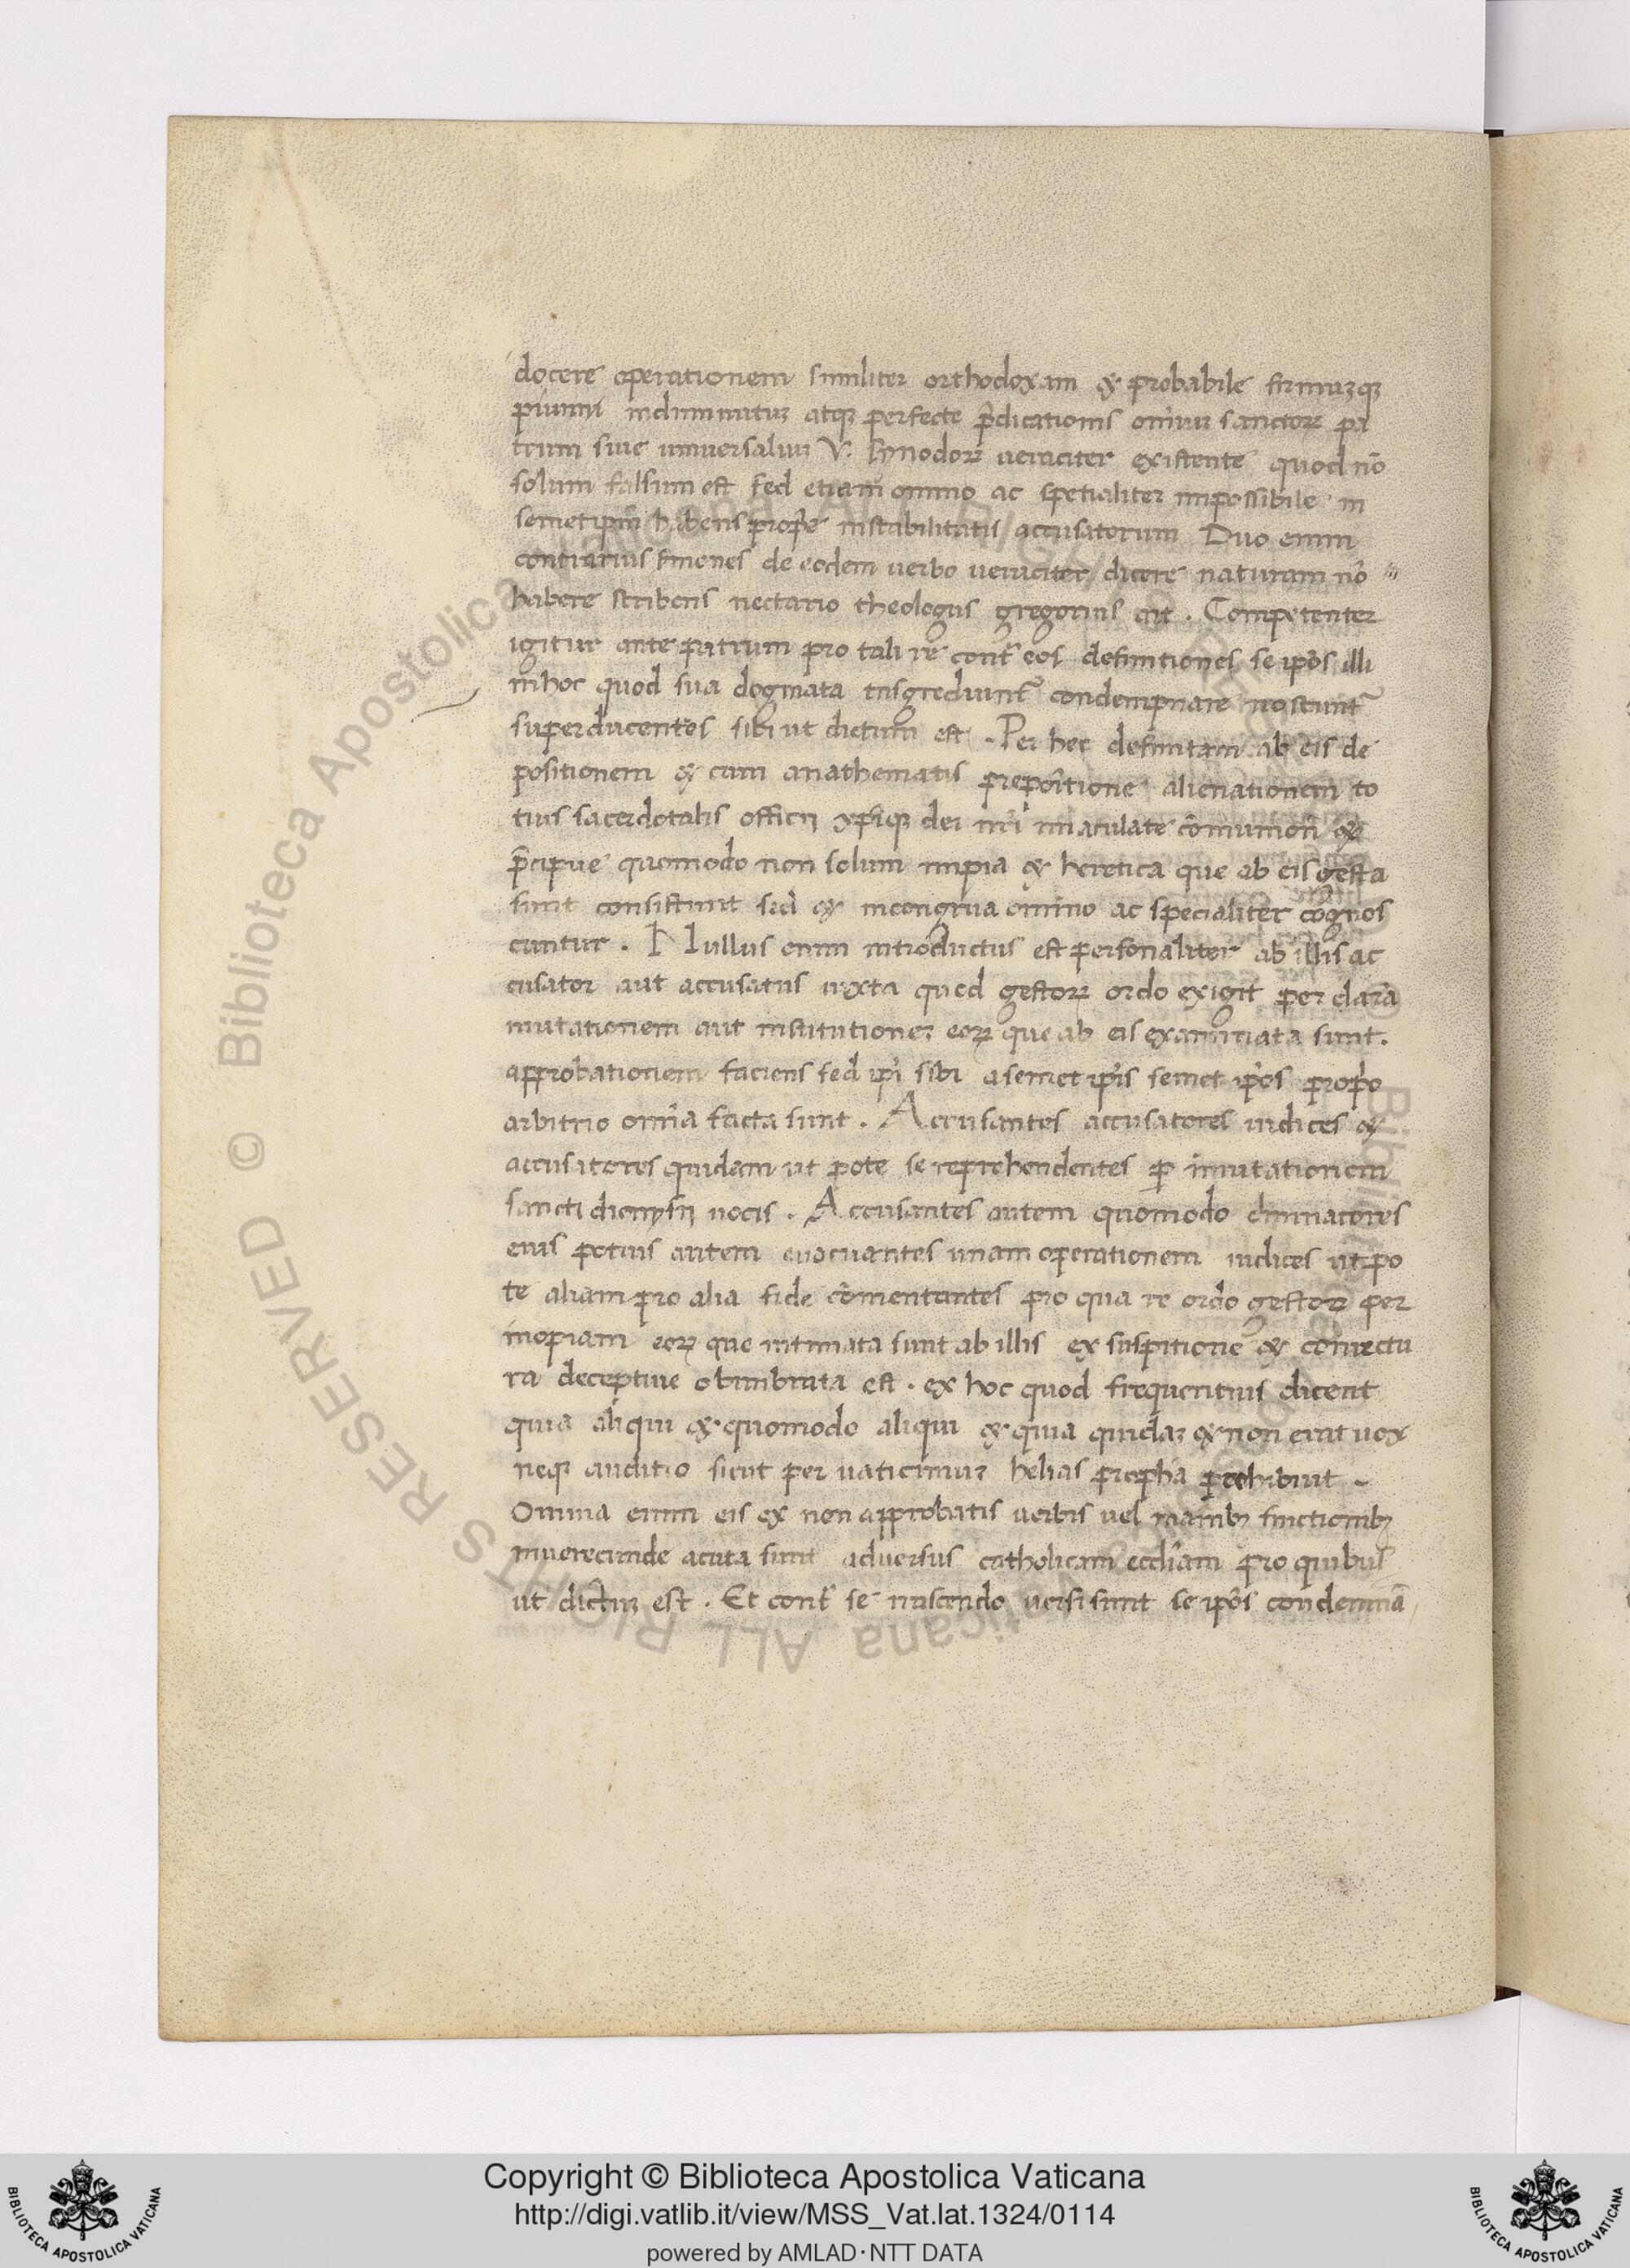 docere operationem similiter orthodoxam & probabile firmuꝫqꝫ
piumni indiminutuꝫ atqꝫ perfecte p̄dicationis om̄iu sanctoꝝ pa
trum siue uniuersaliū V. synodoꝝ ueraciter existente quod nō
solum falsum est sed etiam omnino ac spetialiter impossibile in
semetip̄m habens prop̄e instabilitatis accusatorum Duo enim
contrarius s̄mones de eodem uerbo ueraciter dicere naturam nō
habere scribens nectario theologus gregorius ait. Competenter
igitur ante patrum pro tali re cont̄ eos definitiones se ip̄os illi
inhoc quod sua dogmata tn̄sgrediunt̄ condempnare noscunt̄
superducentes sibi ut dictum est. Per hec definitam ab eis de
positionem & cum anathematis prepoītione alienationem to
tius sacerdotalis officij xp̄iqꝫ dei nr̄i inaculate cōmunion̄ &
p̄cipue quomodo non solum impia & heretica que ab eis gesta
sunt consistunt sed & incongrua omino ac specialiter cognos
cuntur. Nullus enim introductus est personaliter ab illis ac
cusator aut accusatus iuxta quod gestoꝝ ordo exigit per clarā
mutationem aut institutioneꝫ eoꝝ que ab eis examinata sunt.
approbationem faciens sed ip̄i sibi asemet ip̄is semet ip̄os prop̄o
arbitrio om̄ia facta sunt. Accusantes accusatores iudices &
accusatores quidem ut pote se reprehendentes ꝑ inmutationem
sancti dionysij uocis. Accusantes autem quomodo criminatores
eius potius autem euacuantes unam operationem iudices utpo
te aliam pro alia fide cōmentantes pro qua re ordo gestoꝝ per
inopiam eoꝝ que intimata sunt ab illis ex suspitione & coniectu
ra deceptiue obumbrata est. ex hoc quod frequentius dicerit
quia aliqui & quomodo aliqui & quia quidaꝫ & non erat uox
neqꝫ auditio sicut per uaticiniuꝫ helias propha prohibuit
Omnia enim eis ex non approbatis uerbis uel manibꝫ finctionibꝫ
inuerecunde acuta sunt aduersus catholicam eccl̄iam pro quibus
ut dictuꝫ est. Et cont̄ se nascendo uersi sunt se ip̄os condemnā
© Biblioteca Apostolica Vaticana ALL RIGHTS RESERVED
Copyright © Biblioteca Apostolica Vaticana
http://digi.vatlib.it/view/MSS_Vat.lat.1324/0114
powered by AMLAD·NTT DATA
BIBLIOTECA APOSTOLICA VATICANA
BIBLIOTECA APOSTOLICA VATICANA